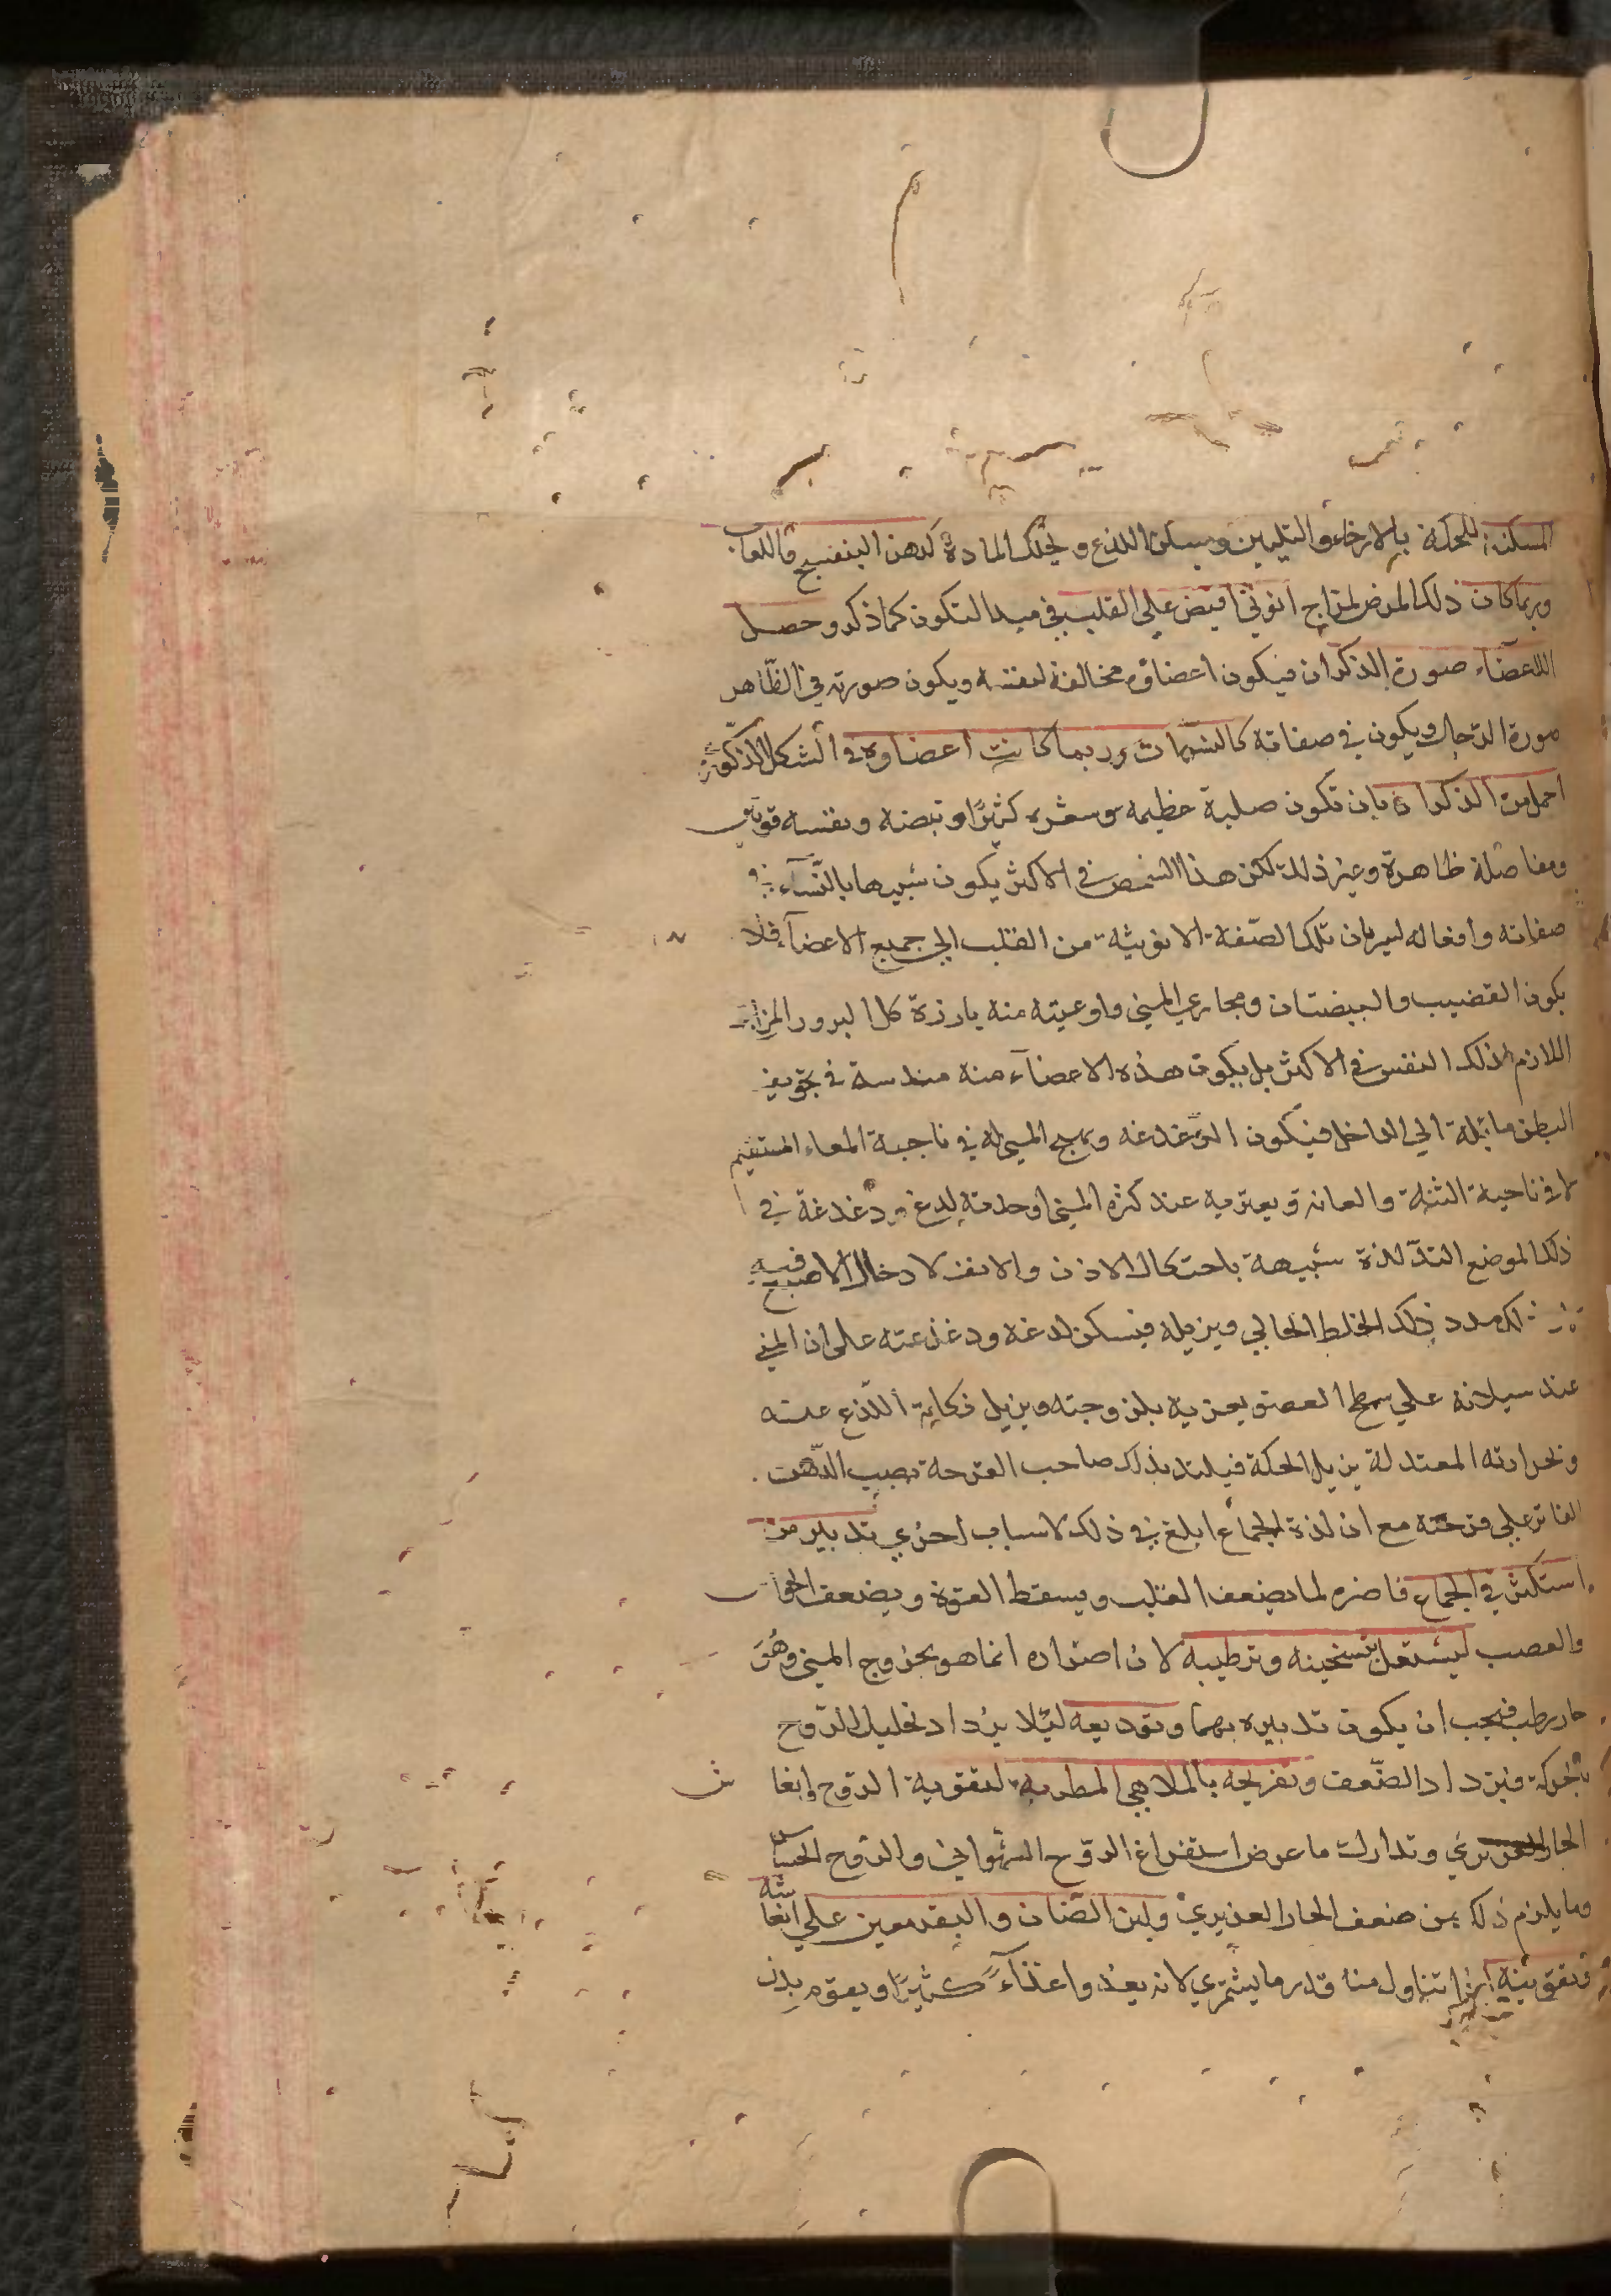 المسكنة للحكة بالارخاء والتليين ويسكن اللذع ويحلل المادة كدهن البنفسج واللعاب
وربما كان ذلك المرض لمزاج انوثي افيض علي القلب في مبدا التكون كما ذكر وحصل
اللاعضاء صورة الذكران فيكون اعضاؤه مخالفة لنفسه ويكون صورته في الظاهر
صورة الرجال ويكون في صفاته كالنسمات وربما كانت اعضاوه في الشكل الذكورة
اجمل من الذكران بان تكون صلبة عظيمه وسعره كثيرا ونبضه ونفسه قويين
ومفاصله ظاهرة وغير ذلك لكن هذا الشخص في الاكثر يكون شبيها بالنساء في
صفاته وافعاله لسريان تلك الصفة الانوثية من القلب الي جميع الاعضاء فلا
يكون القضيب والبيضتان ومجاري المني واوعيته منه بارزة كل البروز المزاج
اللازم لذلك النفس في الاكثر بل يكون هذه الاعضاء منه مندسة في تجويف
البطن مائلة الي الداخل فيكون الدغدغه وتهيج المني له في ناحية المعاء المستقيم
لا في ناحية الثنة والعانة ويعتريه عند كثرة المني او حدته لدغ ودغدغة في
ذلك الموضع التذ لذة شبيهة باحتكاك الاذن والانف لادخال الاصبع فيه
لكن مدد ذلك الخلط الحالي ويزيله فيسكن لدغه ودغدغته على ان المني
عند سيلانه علي سطح العضو يغريه بلزوجته ويزيل نكاية اللذع عنه
وبحرارته المعتدلة يزيل الحكة فيلتذ بذلك صاحب القرحة بصب الدهن
الفاتر علي قرحته مع ان لذة الجماع ابلغ في ذلك لاسباب اخري تدبير من
استكثر في الجماع فاضره لما يضعف القلب ويسقط القوة ويضعف الحواس
والعصب ليشتغل بتسخينه وترطيبه لان اضراره انما هو بخروج المني وهو
حار رطب فيجب ان يكون تدبيره بهما وتوديعه ليلا يزداد تحليل الروح
بالحركة فيزداد الضعف وتفريحه بالملاهي المطربه لتقوية الروح وانعاش
الحار الغريزي وتدارك ما عرض استفراغ الروح الشهواني والروح الحساسة
وما يلزم ذلك من ضعف الحار الغريزي ولبن الضان والبقر معين علي انعاشه
وتقويته اذا تناول منه قدر ما يستمري لانه يغذوا غذاء كثيرا ويقوم بدل